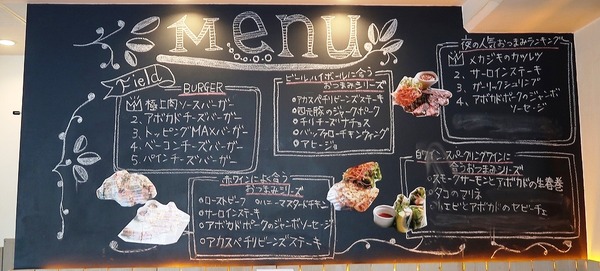 Menu
Field
BURGER
極上肉ソースバーガー
2、アボカドチーズバーガー
3、トッピングMAXバーガー
4、ベーコンチーズバーガー
5、パインチーズバーガー
ビール・ハイボールに合う
おつまみシリーズ
アカスペチリビーンズステーキ
四元豚のジャークポーク
チリチーズナチョス
バッファローチキンウィング
アヒージョ
夜の人気おつまみランキング
メカジキのカツレツ
2、サーロインステーキ
3、ガーリックシュリンプ
4、アボカドポークのジャンボ
ソーセージ
赤ワインによく合う
おつまみシリーズ
ローストビーフ ハニーマスタードチキン
サーロインステーキ
アボカドポークのジャンボソーセージ
アカスペチリビーンズステーキ
白ワイン・スパークリングワインに
合うおつまみシリーズ
スモークサーモンとアボカドの生春巻
タコのマリネ
エビとアボカドのセビーチェ